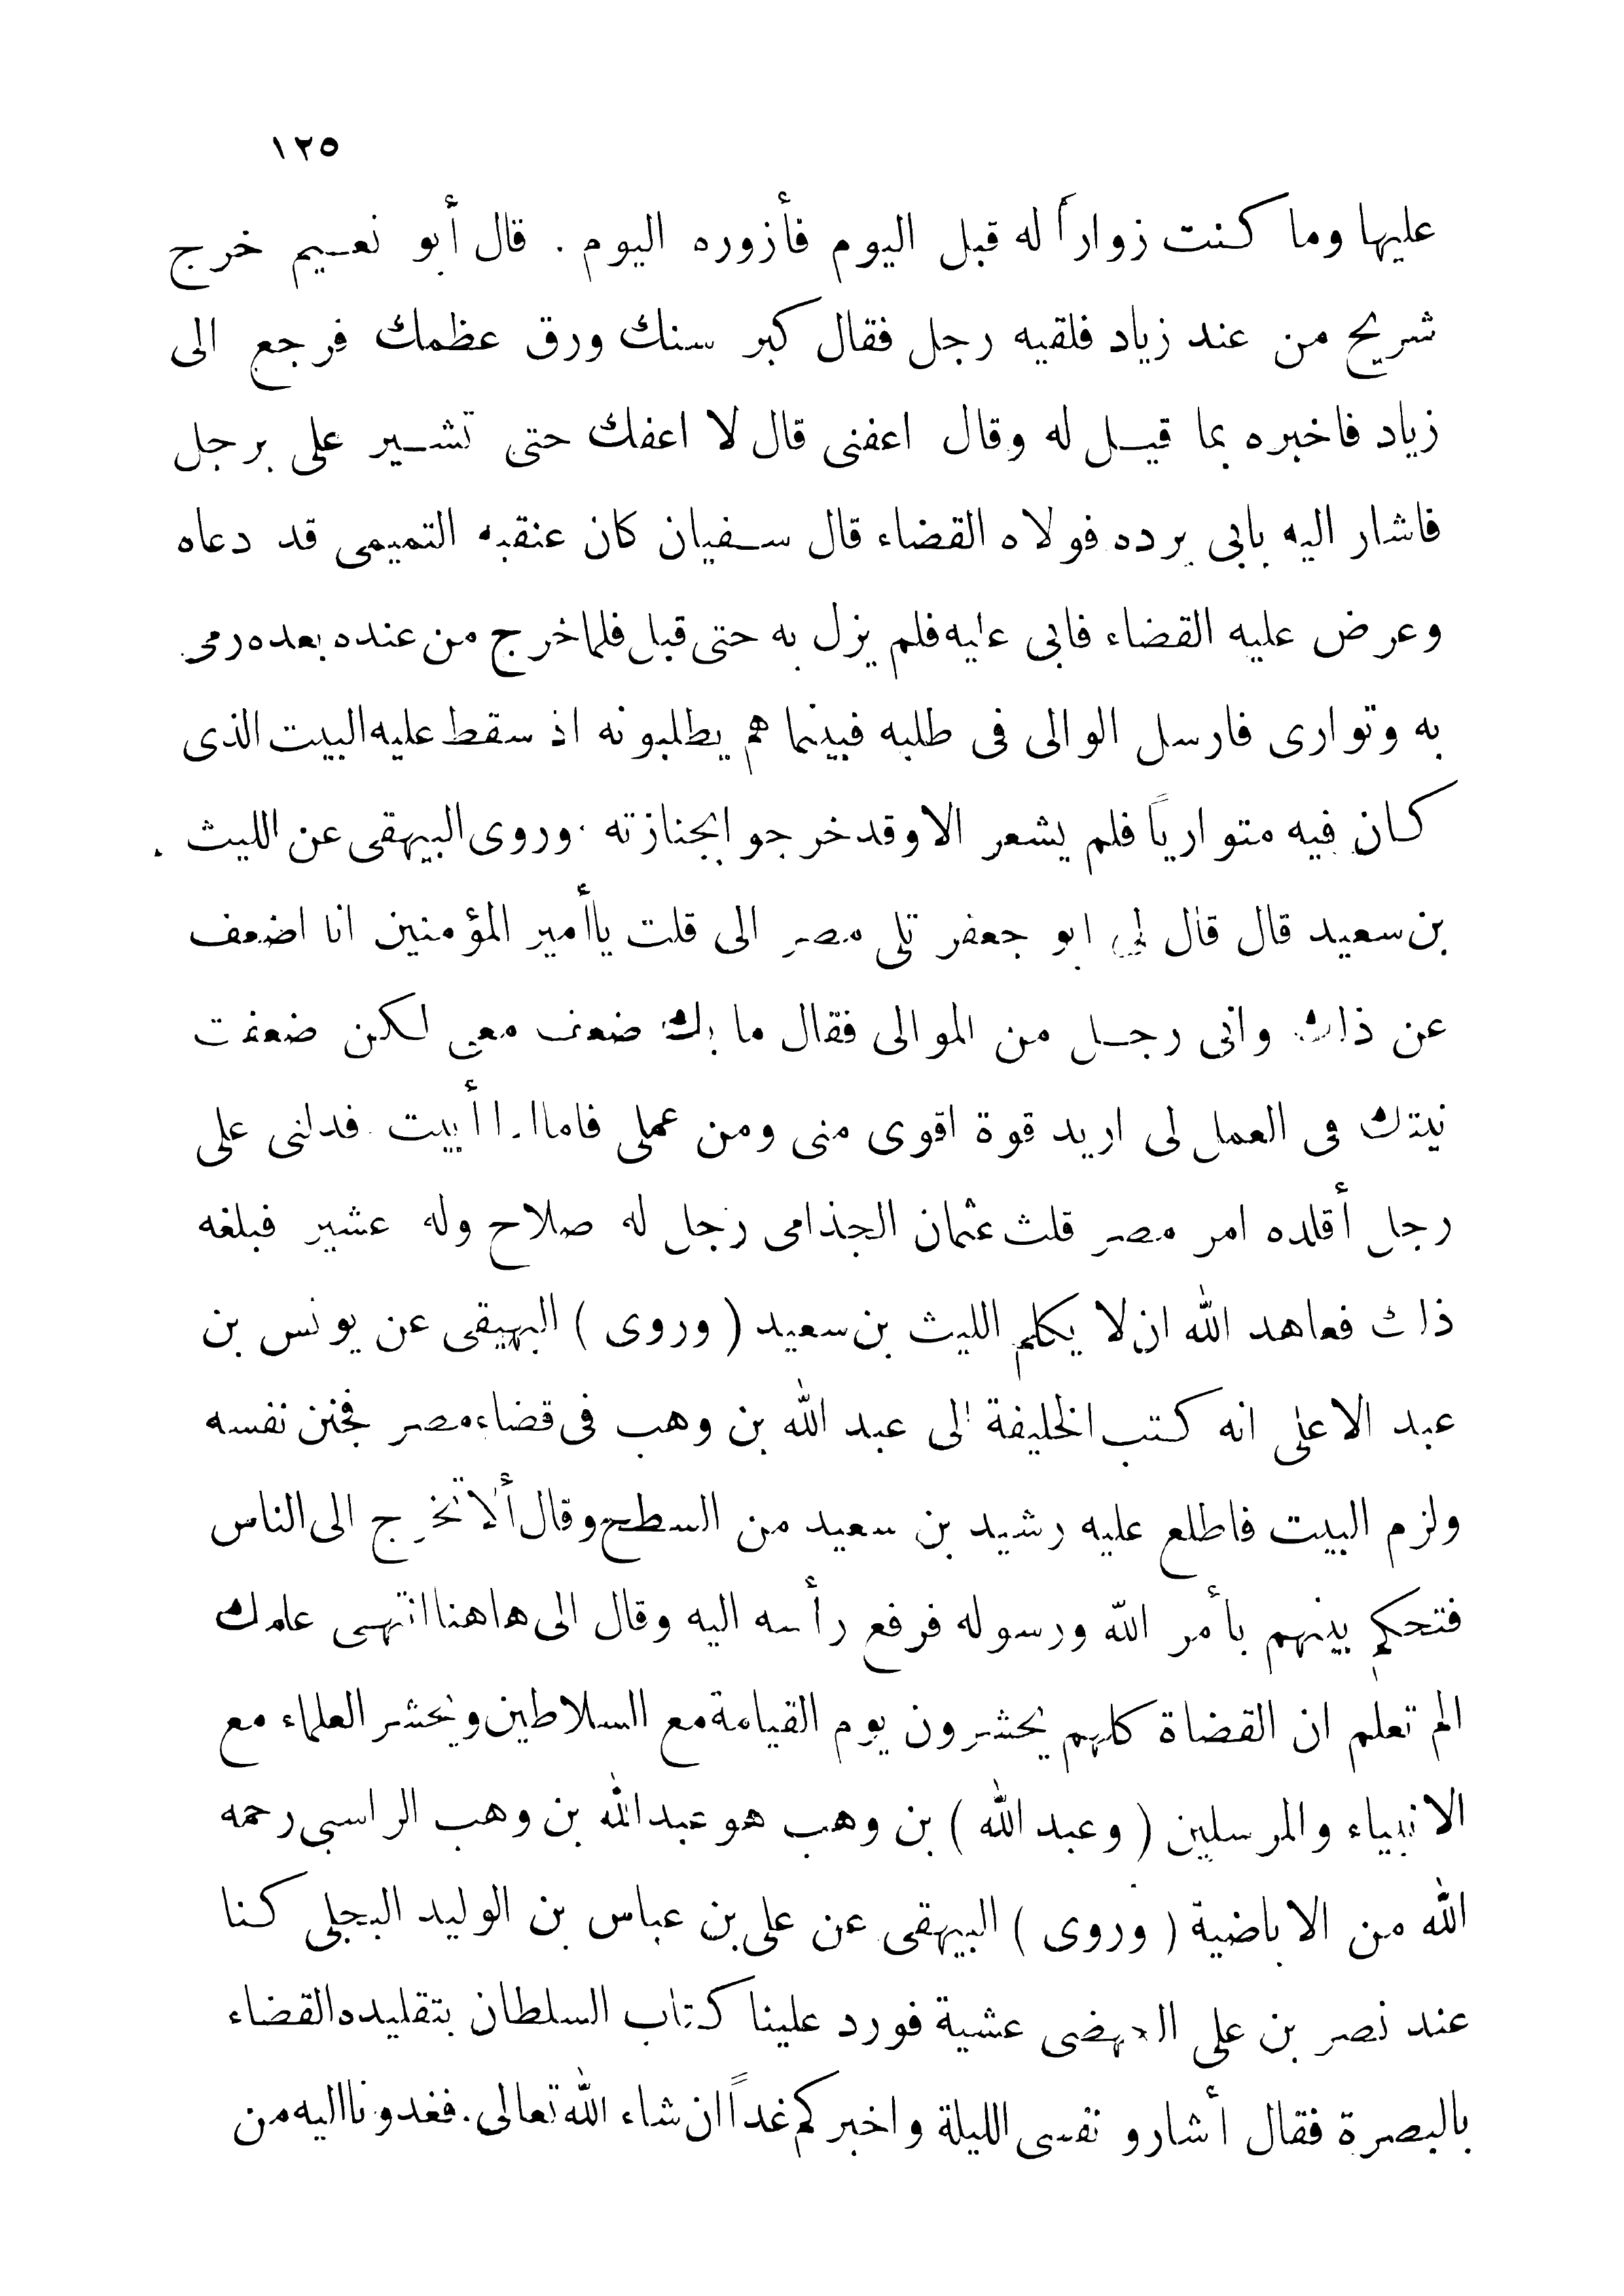 ١٢٥
عليها وما كنت زواراً له قبل اليوم فأزوره اليوم . قال أبو نعيم خرج
شريح من عند زياد فلقيه رجل فقال كبر سنك ورق عظمك فرجع الى
زياد فاخبره بما قيل له وقال اعفنى قال لا اعفك حتى تشير على برجل
فاشار اليه بابى برده فولاه القضاء قال سفيان كان عنقبه التميمى قد دعاه
وعرض عليه القضاء فابى عليه فلم يزل به حتى قبل فلما خرج من عنده بعده رمى
به وتوارى فارسل الوالى فى طلبه فبينما هم يطلبونه اذ سقط عليه البيت الذى
كان فيه متوارياً فلم يشعر الا وقد خرجو ابجنازته . وروى البيهقى عن الليث
بن سعيد قال قال لي ابو جعفر تلى مصر الى قلت ياأمير المؤمنين انا اضعف
عن ذاك وانى رجل من الموالى فقال ما بك ضعف معى لكن ضعفت
نيتك فى العمل لى اريد قوة اقوى منى ومن عملى فاما أبيت فدلنى على
رجل أقلده امر مصر قلت عثمان الجذامى رجل له صلاح وله عشير فبلغه
ذاك فعاهد الله ان لا يكلم الليث بن سعيد ( وروى ) البهيقى عن يونس بن
عبد الاعلى انه كتب الخليفة الى عبد الله بن وهب فى قضاء مصر فجنن نفسه
ولزم البيت فاطلع عليه رشيد بن سعيد من السطح وقال ألا تخرج الى الناس
فتحكم بينهم بأمر الله ورسوله فرفع رأسه اليه وقال الى هاهنا انتهى علمك
الم تعلم ان القضاة كلهم يحشرون يوم القيامة مع السلاطين ويحشر العلماء مع
الانبياء والمرسلين ( وعبد الله ) بن وهب هو عبد الله بن وهب الراسبى رحمه
الله من الاباضية ( وروى ) البيهقى عن على بن عباس بن الوليد البجلى كنا
عند نصر بن على عشية فورد علينا كتاب السلطان بتقليده القضاء
بالبصرة فقال أشارو نفسى الليلة واخبركم غداً ان شاء الله تعالى . فغدونا اليه من